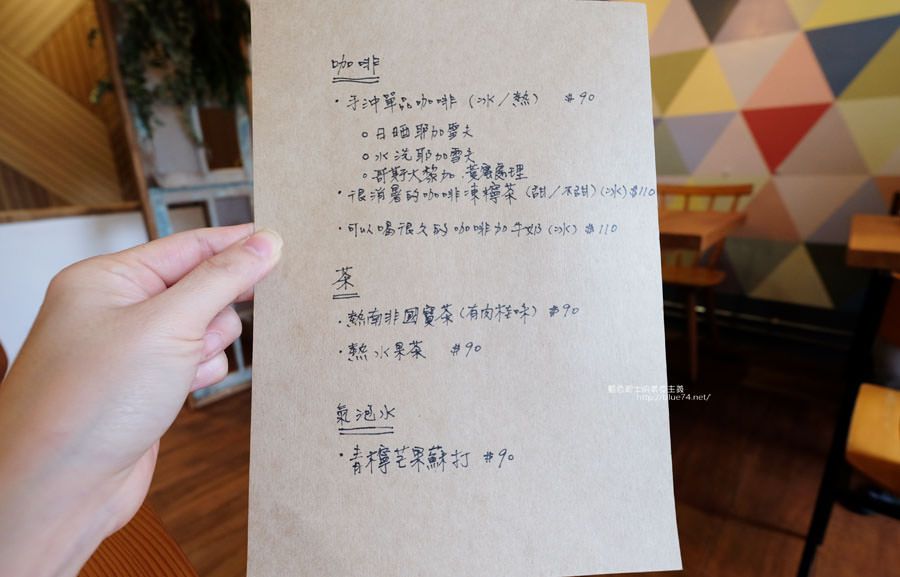 咖啡
・手沖單品咖啡（冰／熱） $90
○日晒耶加雪夫
○水洗耶加雪夫
○哥斯大黎加.黃蜜處理
・很消暑的咖啡凍檸茶（甜／不甜）（冰）$110
・可以喝很久的咖啡加牛奶（冰）$110
茶
・熱南非國寶茶（有肉桂味） $90
・熱水果茶 $90
氣泡水
・青檸芒果蘇打 $90
藍色起士的美食主義
http://blue74.net/